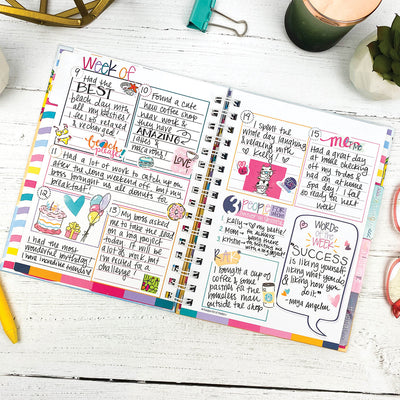 Week of
9 Had the
BEST
beach day
with all
my besties!
I feel so relaxed
& recharged
beach please!
10 Found a cute
new coffee shop
near work &
they have
AMAZING
lattes &
macarons!
LOVE
11 I had a lot of work to catch up on
after the long weekend off, but my
boss brought us all donuts for
breakfast!
12
I had the most
wonderful birthday!
I have incredible friends
13 My boss asked
me to take the lead
on a big project
today. It will be
a lot of work, but
I'm ready for a
challenge!
14 I spent the
whole day laughing
& relaxing with
Kelly!
15 me time
Had a great day
at home checking
off my to-dos &
had an at-home
Spa day! I feel
so ready for
next week!
3 PEOPLE
1. Kelly -
2. Mom -
3. Kristin -
I bought a cup of
coffee & some
pastries for the
homeless man
outside the shop
WORDS
of the
WEEK
"SUCCESS
is liking yourself,
liking what you do
& liking how you
do it."
-Maya Angelou